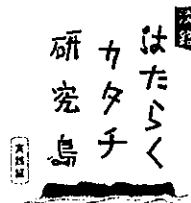 はたらく
カタチ
研究島
実践編